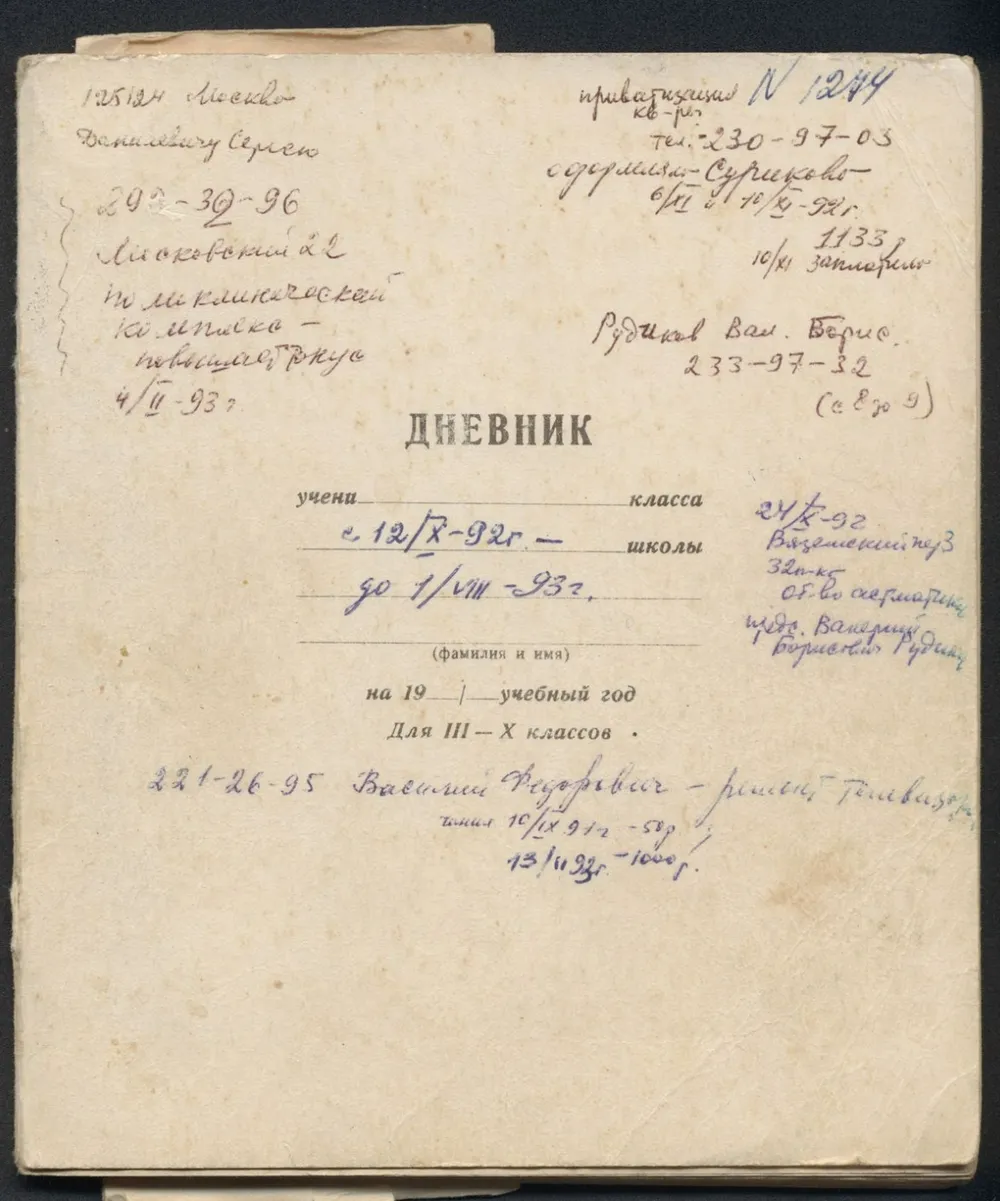 125124 Москва
Данилевичу Сергею
29 - 39 - 96
Московский 22
поликлинической
комплекс -
повышает тонус
4/II - 93 г
приватизация N 1244
кв-ры
тел. 230-97-03
оформляла Сурикова
6/XI и 10/XI-92г.
1133 р
10/XI заплатила
Рудиков Вал. Борис.
233-97-32
(с 8 до 9)
ДНЕВНИК
учени класса
с 12/X-92г. — школы
до 1/VIII-93г.
(фамилия и имя)
на 19 / учебный год
Для III — X классов
24/X-92
Вяземский пер 3
32
об-во астматиков
предс. Валерий
Борисович Рудиков
221-26-95 Василий Федорович - ремонт телевизора
чинил 10/IX 91г - 50р
13/II 92г. - 1000р.